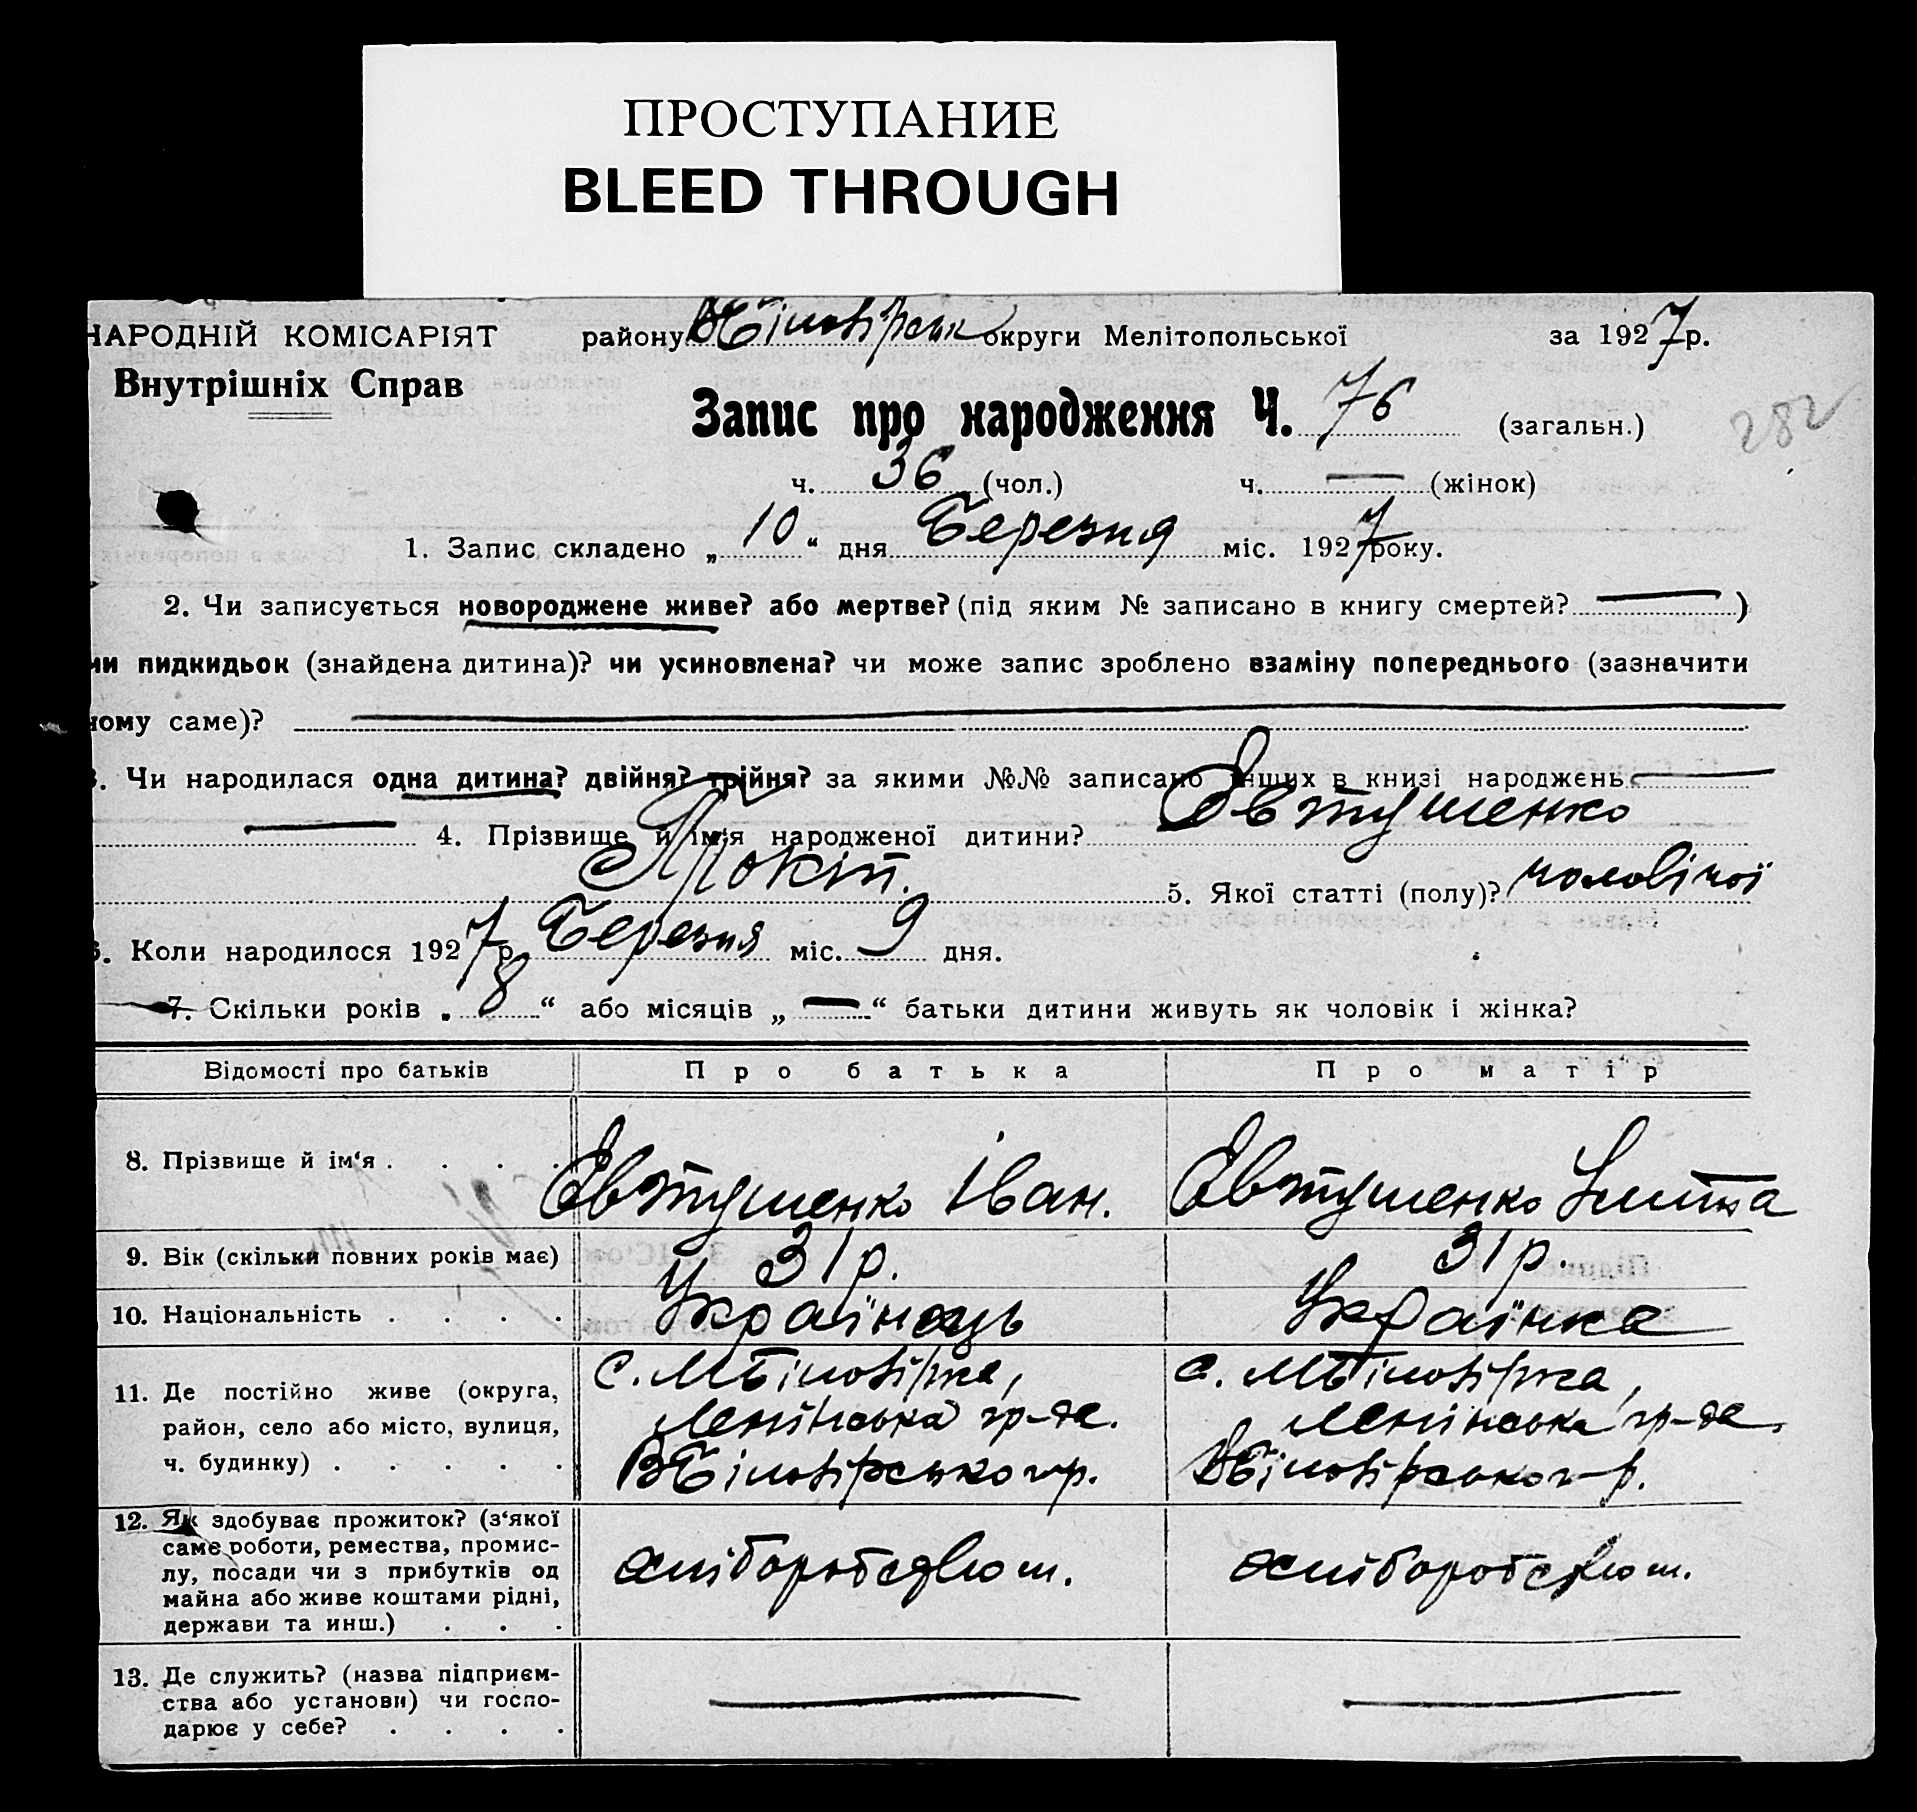 ПРОСТУПАНИЕ
BLEED THROUGH
НАРОДНІЙ КОМІСАРІЯТ району ВБілозірськ округи Мелітопольської за 1927 р.
Внутрішніх Справ
Запис про народження Ч. 76 (загальн.)
282
ч. 36 (чол.) ч. — (жінок)
1. Запис складено „ 10 “ дня Березня міс. 1927 року.
2. Чи записується новороджене живе? або мертве? (під яким № записано в книгу смертей? — )
чи пидкидьок (знайдена дитина)? чи усиновлена? чи може запис зроблено взаміну попереднього (зазначити
чому саме)? —
3. Чи народилася одна дитина? двійня? трійня? за якими №№ записано інших в книзі народжень —
— 4. Прізвище й ім'я народженої дитини? Євтушенко
Прокіп. 5. Якої статті (полу)? чоловічої
6. Коли народилося 1927 р. Березня міс. 9 дня.
7. Скільки років „ 8 “ або місяців „ — “ батьки дитини живуть як чоловік і жінка?
Відомості про батьків Про батька Про матір
8. Прізвище й ім‘я . . . . Євтушенко Іван. Євтушенко
9. Вік (скільки повних років має) 31 р. 31 р.
10. Національність . . . . Українець Українка
11. Де постійно живе (округа, район, село або місто, вулиця, ч. будинку) . . . . .
с. МБілозірка, с. МБілозірка,
Ленінська гр-да. Ленінська гр-да.
ВБілозірського р. ВБілозірського р.
12. Як здобуває прожиток? (з‘якої
саме роботи, ремества, промис-
лу, посади чи з прибутків од
майна або живе коштами рідні,
держави та инш.) . . .
хліборобством. хліборобством.
13. Де служить? (назва підприєм-
ства або установи) чи госпо-
дарює у себе? . . . .
— —